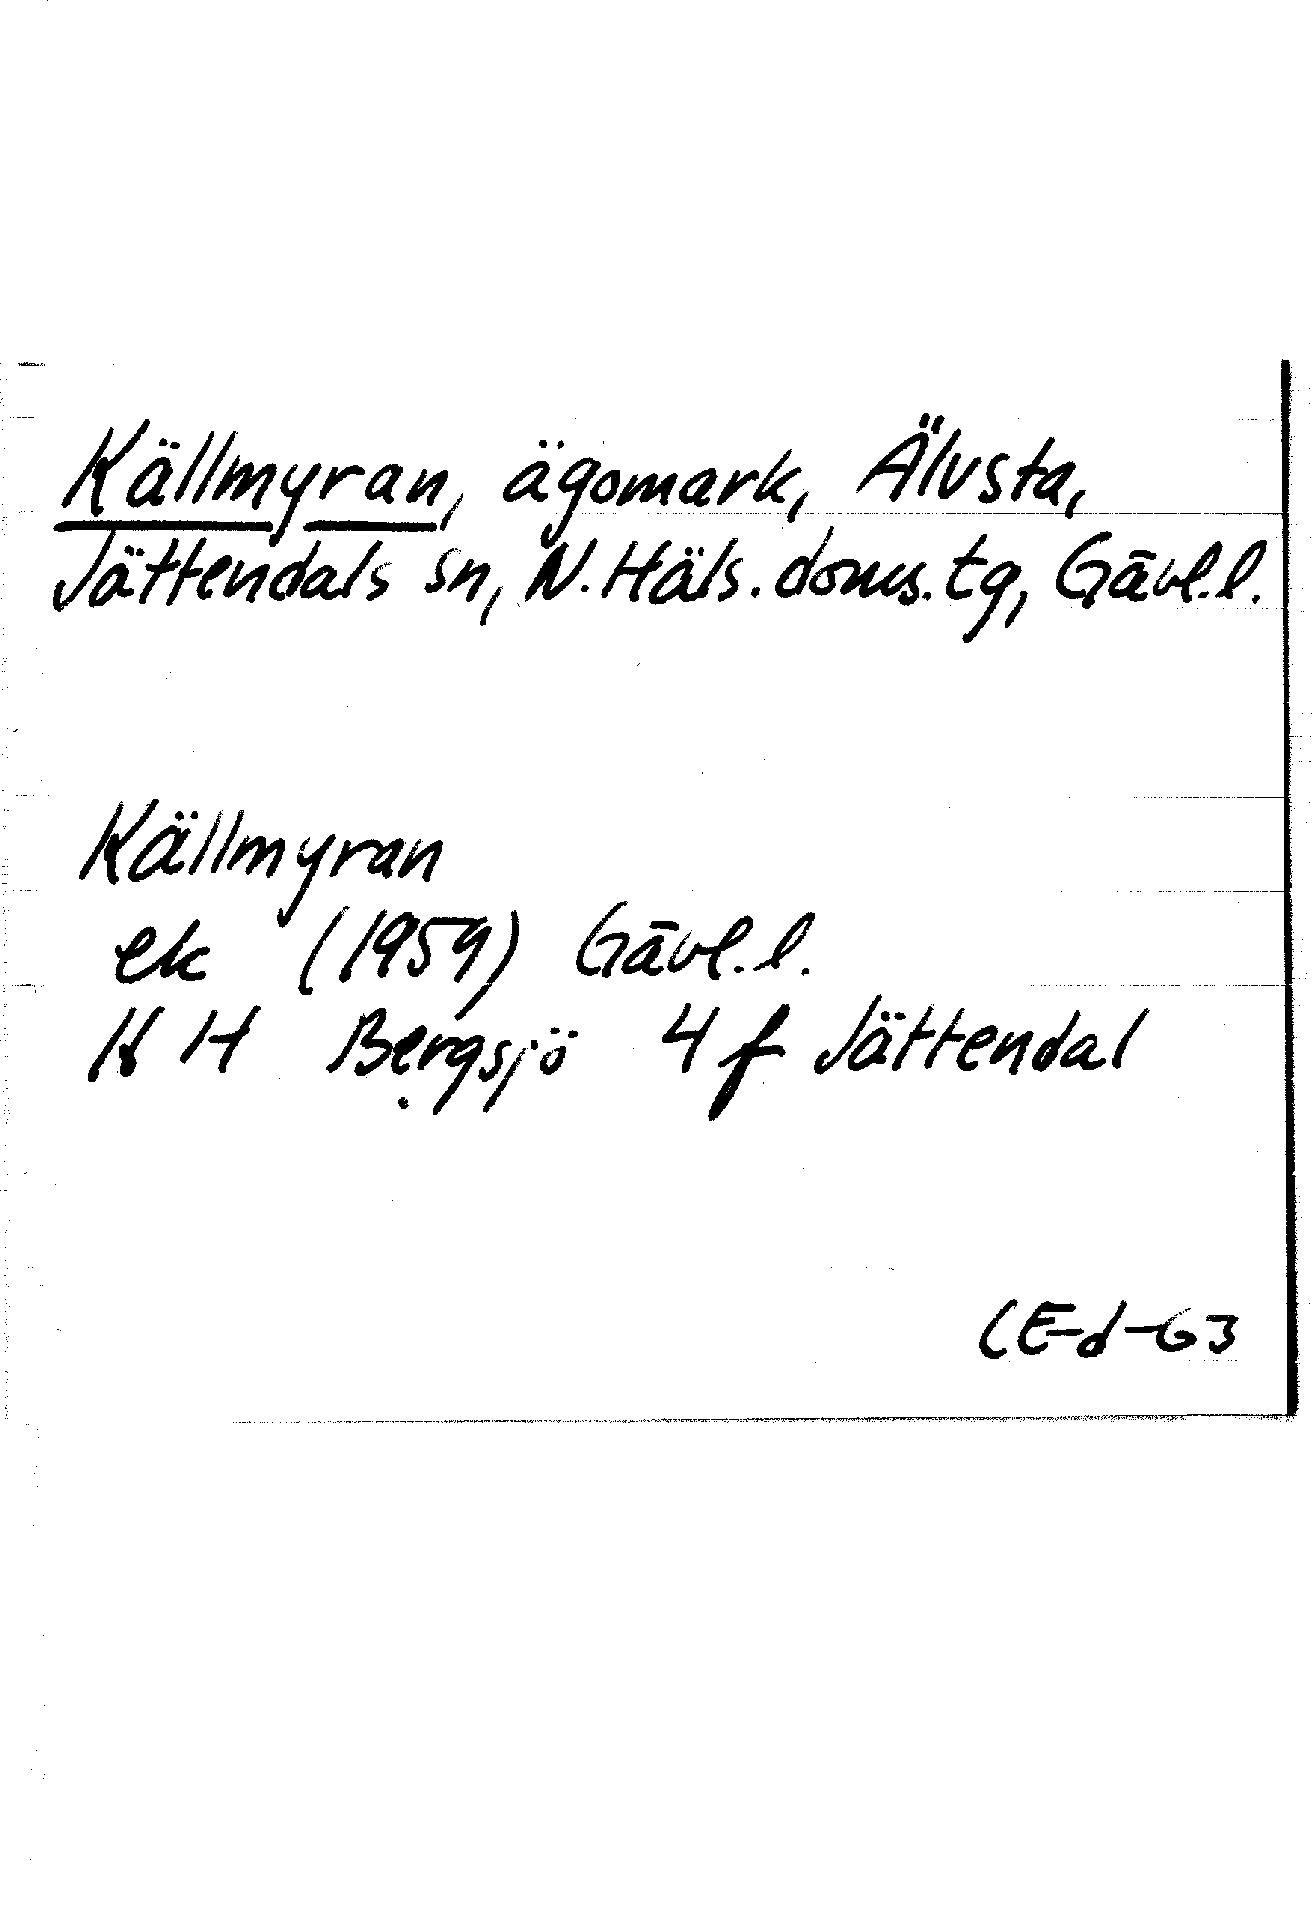 Källmyran, ägomark, Älvsta,
Jättendals sn, N. Häls. doms. tg, Gävl. l.
Källmyran
ek (1959) Gävl. l.
H H Bergsjö 4 f Jättendal
CE-d-63